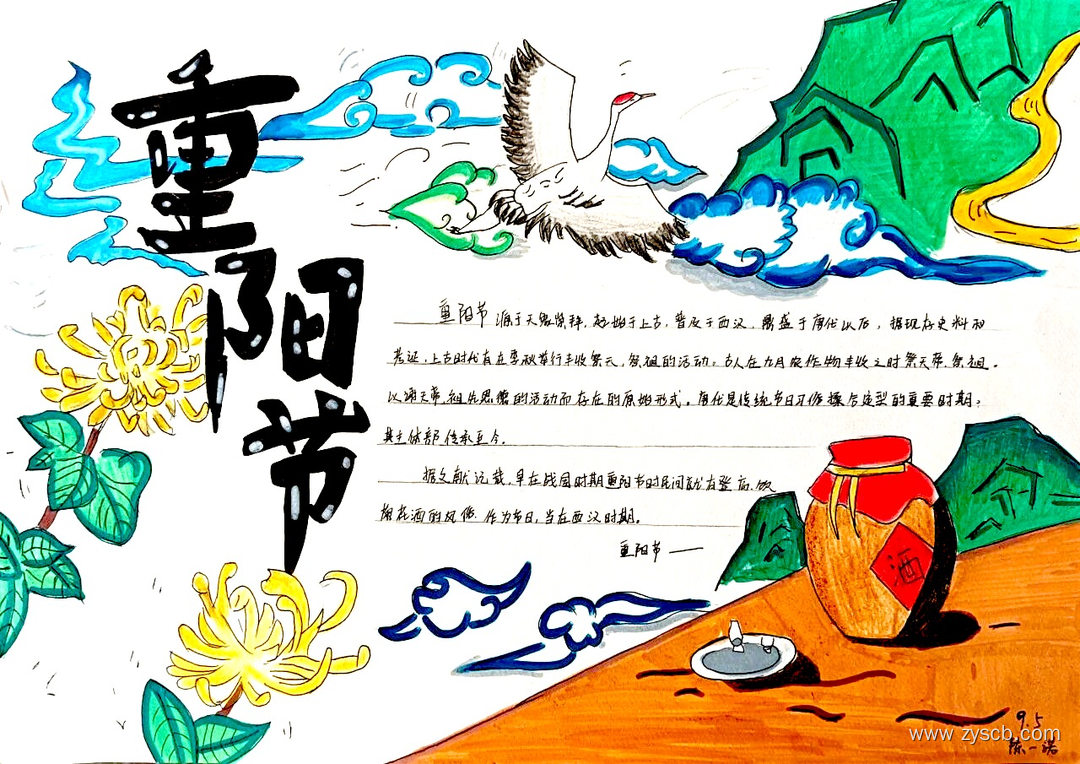 重阳节
重阳节 源于天象崇拜，起始于上古，普及于西汉，鼎盛于唐代以后，据现存史料和
考证，上古时代有在季秋举行丰收祭天、祭祖的活动；古人在九月农作物丰收之时祭天帝、祭祖，
以谢天帝、祖先恩德的活动而存在的原始形式。唐代是传统节日习俗揉合定型的重要时期，
其主体部传承至今。
据文献记载，早在战国时期重阳节时民间就有登高、饮
菊花酒的风俗，作为节日，当在西汉时期。
重阳节 ——
酒
9.5
陈一诺
www.zyscb.com